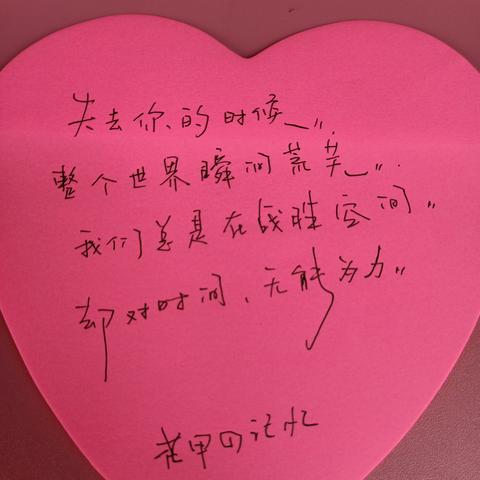 失去你的时候、、、
整个世界瞬间荒芜、、、
我们总是在战胜空间、、
却对时间、无能为力、、
老甲の记忆